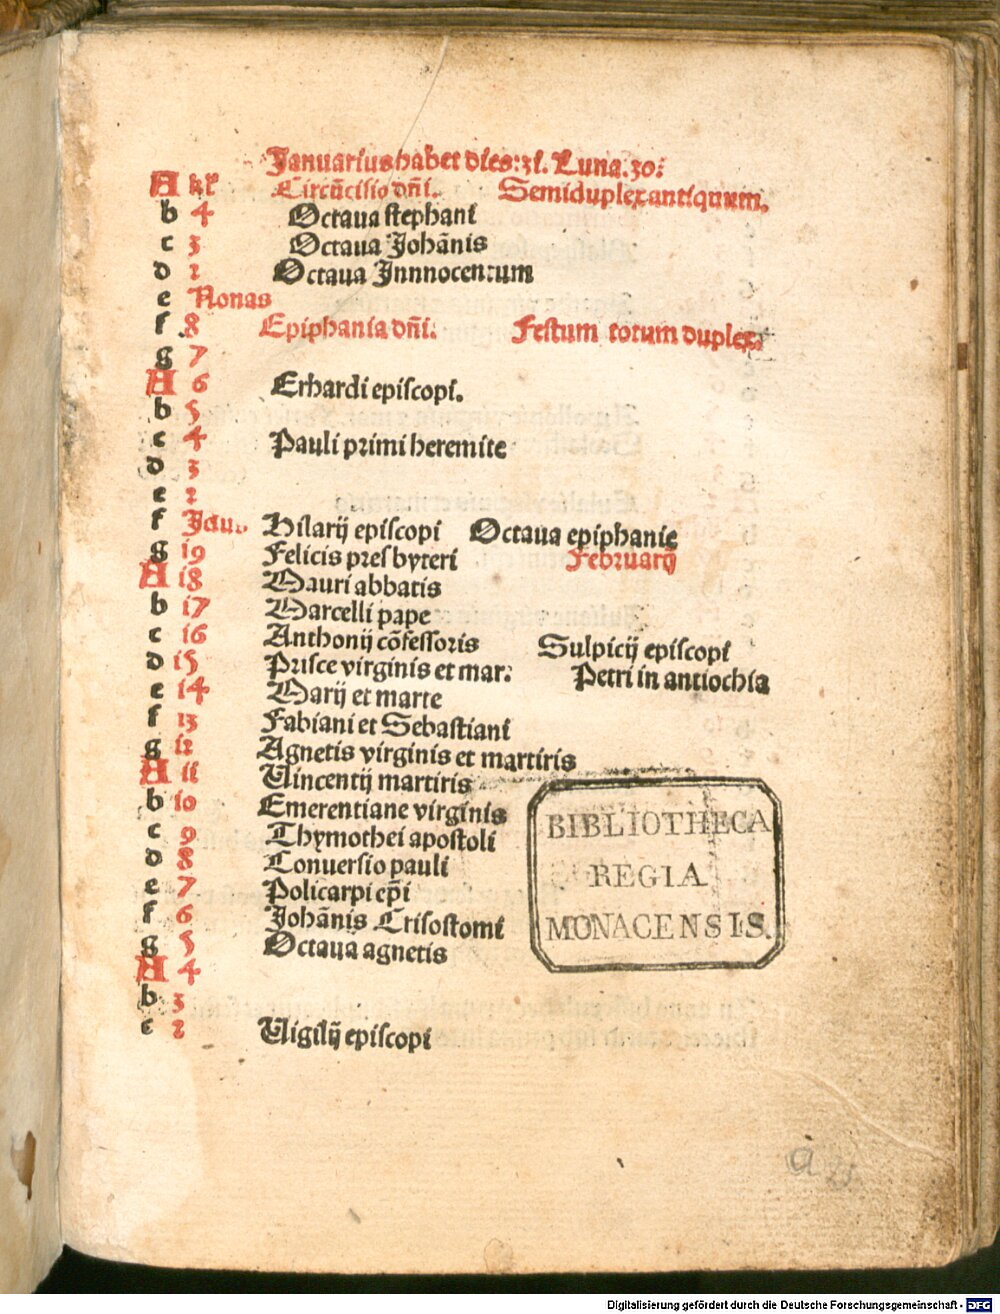 Januarius habet dies:31. Luna.30:
A kł Circũcisio dñi. Semiduplex antiquum.
b 4 Octaua stephani
c 3 Octaua Johãnis
d 2 Octaua Innnocentum
e Nonas
f 8 Epiphania dñi. Festum totum duplex.
g 7
A 6 Erhardi episcopi.
b 5
c 4 Pauli primi heremite
d 3
e 2
f Jdus Hilarij episcopi Octaua epiphanie
g 19 Felicis presbyteri Februarij
A 18 Mauri abbatis
b 17 Marcelli pape
c 16 Anthonij cõfessoris Sulpicij episcopi
d 15 Prisce virginis et mar: Petri in antiochia
e 14 Marij et marte
f 13 Fabiani et Sebastiani
g 12 Agnetis virginis et martiris
A 11 Uincentij martiris
b 10 Emerentiane virginis
c 9 Thymothei apostoli
d 8 Conuersio pauli
e 7 Policarpi ep̃i
f 6 Johãnis Crisostomi
g 5 Octaua agnetis
A 4
b 3
c 2 Uigilij episcopi
BIBLIOTHECA
REGIA
MONACENSIS.
a
Digitalisierung gefördert durch die Deutsche Forschungsgemeinschaft - DFG